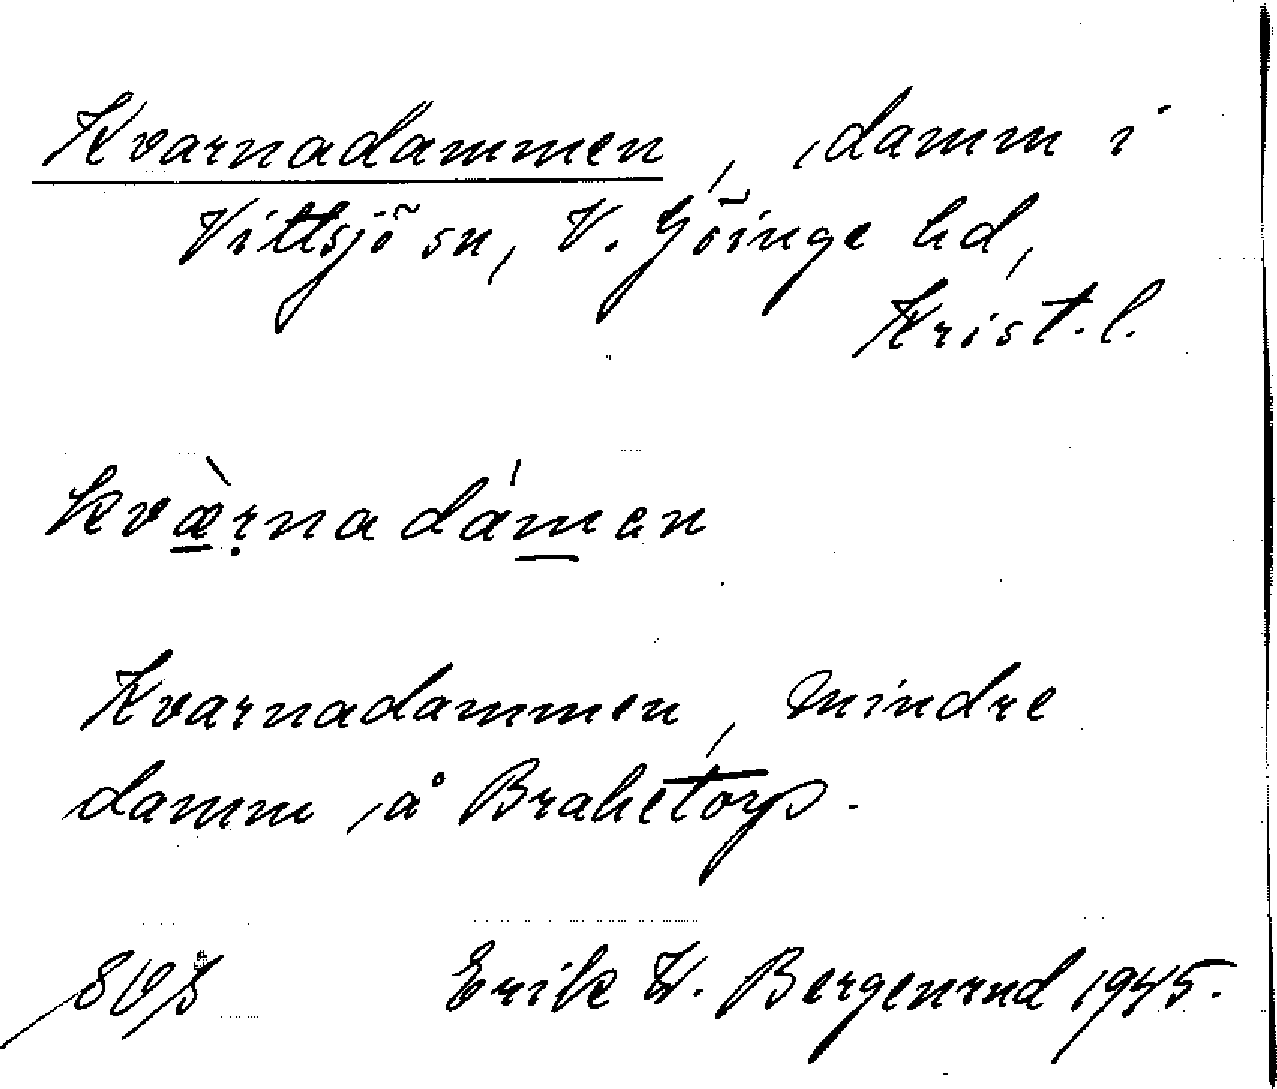 Kvarnadammen, damm i
Vittsjö sn, V. Göinge hd,
Krist. l.
kvæ̀rnadámen
Kvarnadammen, mindre
damm å Brahetorp.
Erik W. Bergenrud 1945.